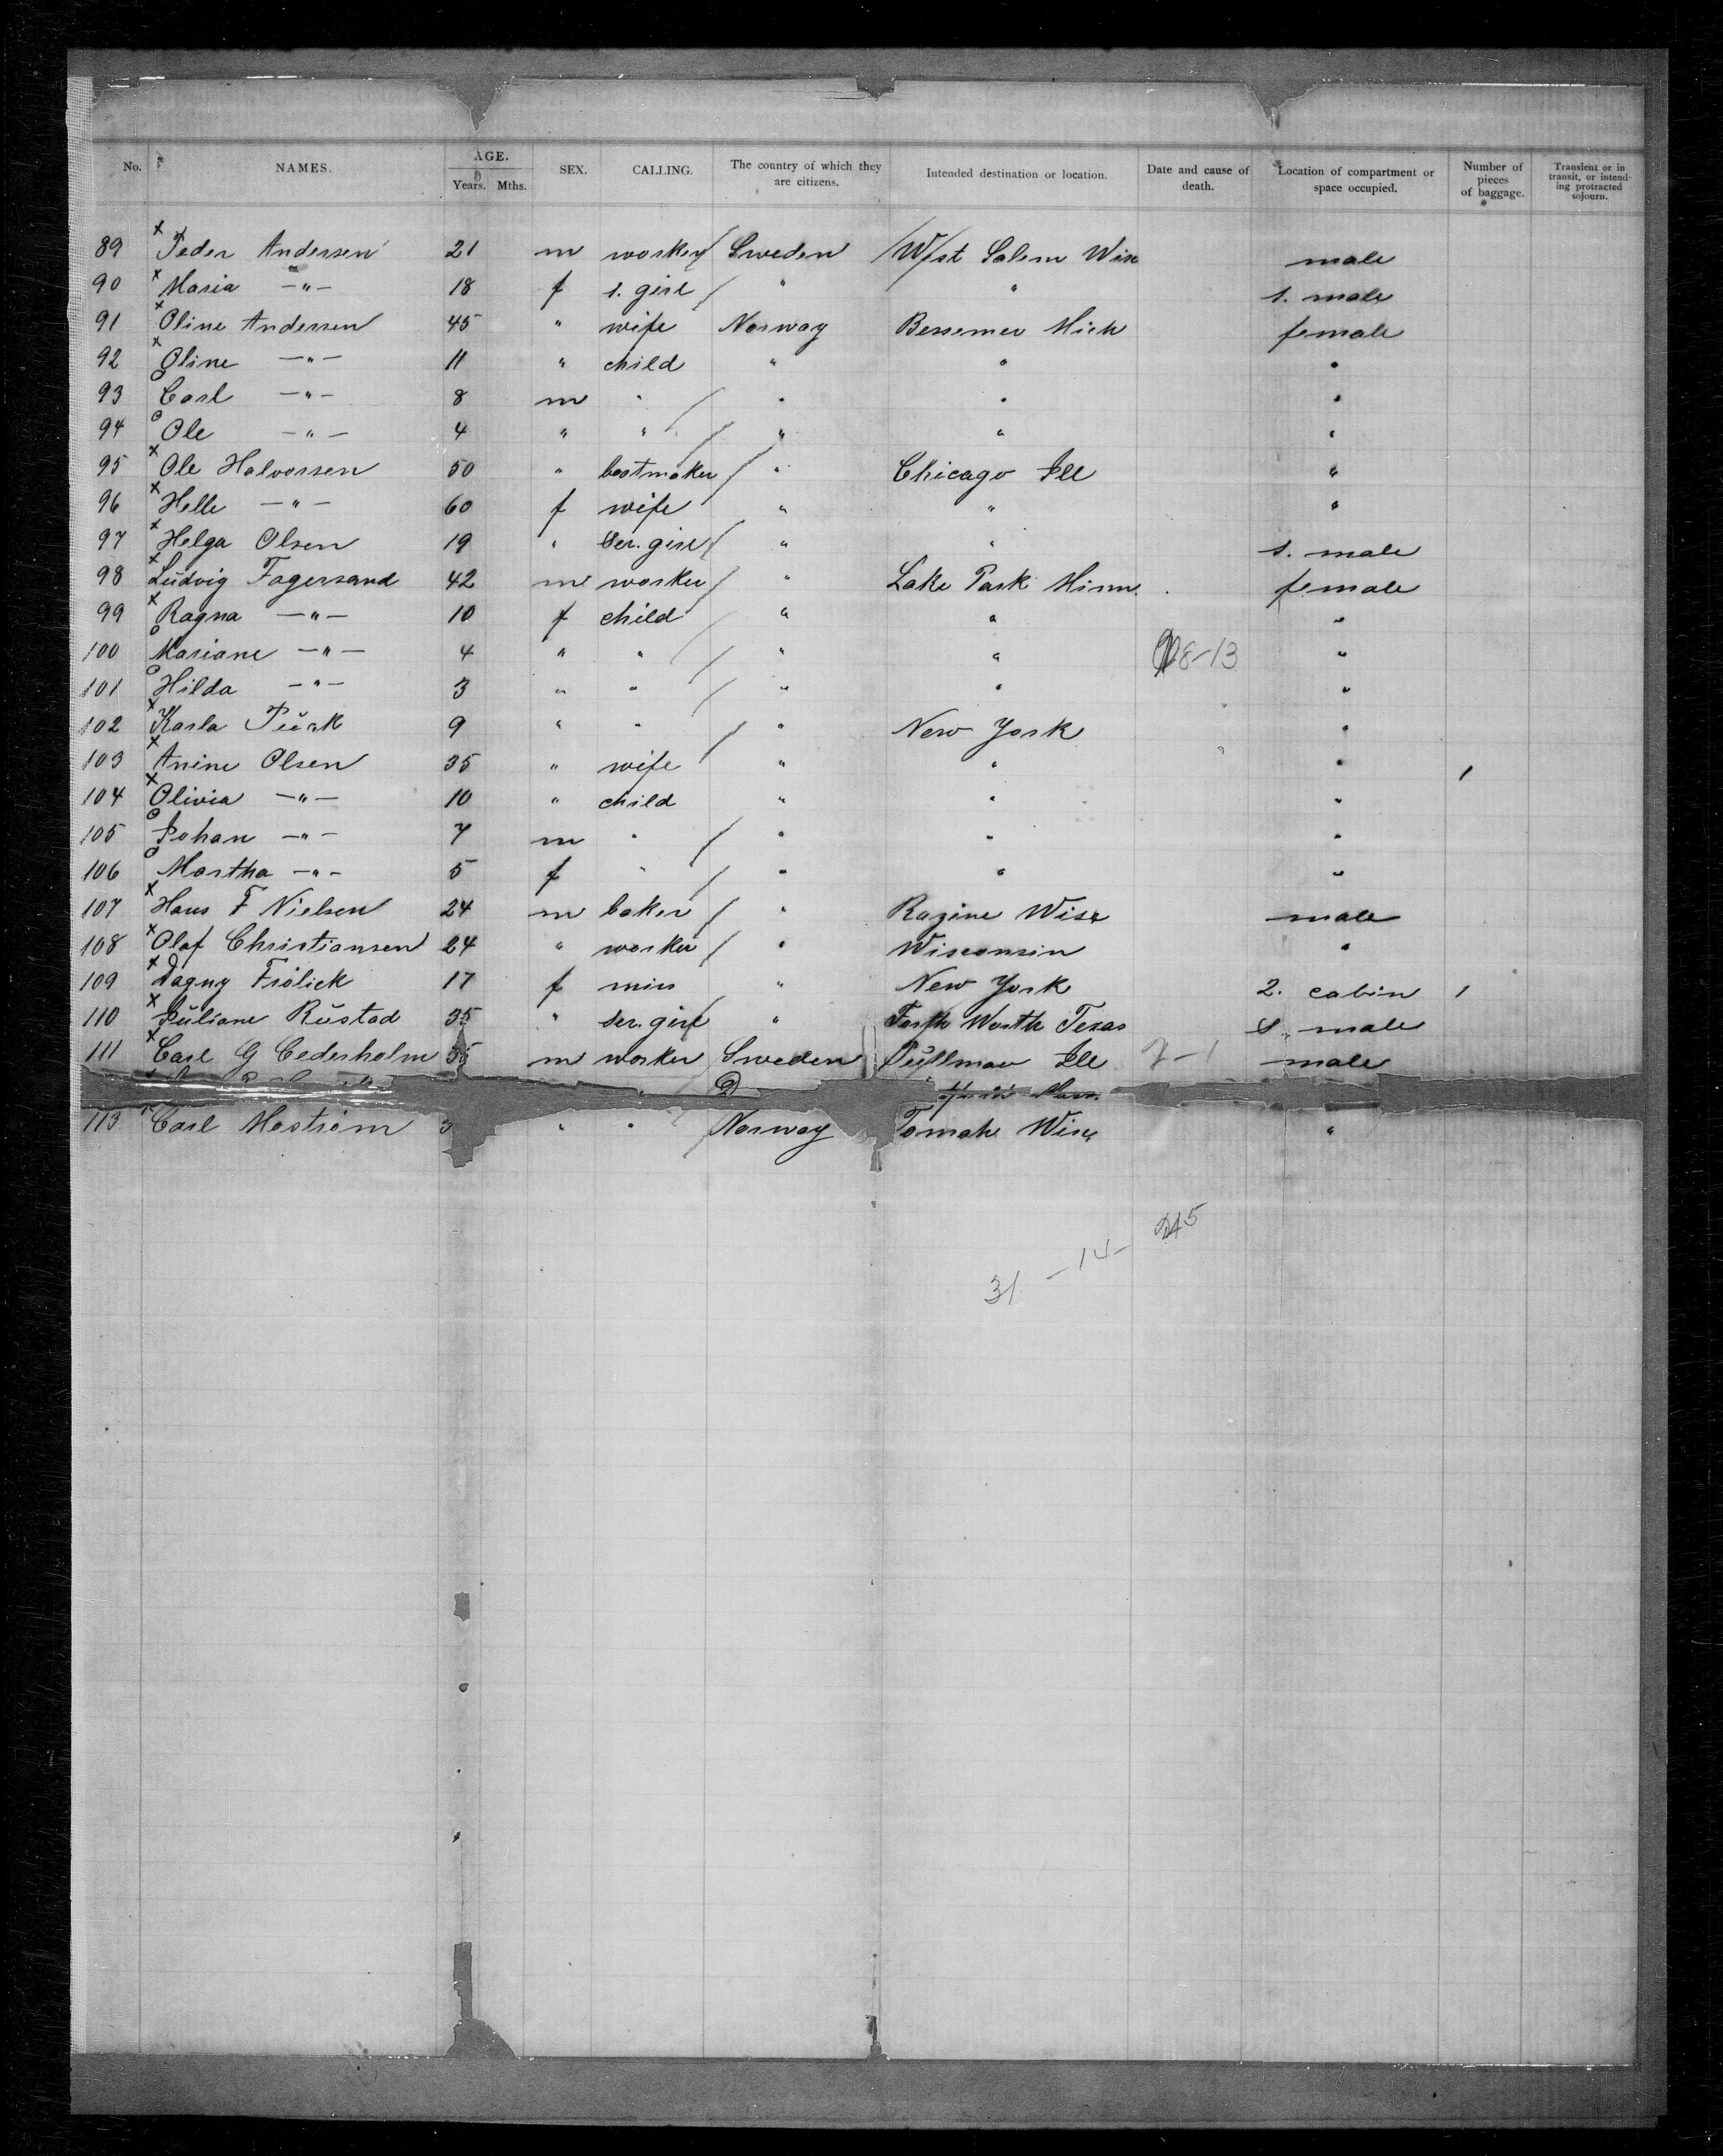 No. NAMES. AGE. Years. Mths. SEX. CALLING. The country of which they are citizens. Intended destination or location. Date and cause of death. Location of compartment or space occupied. Number of pieces of baggage. Transient or in transit, or intending protracted sojourn.
89 x Peder Andersen 21 m worker Sweden West Salem Wisc male
90 x Maria —"— 18 f s. girl " " s. male
91 x Oline Andersen 45 " wife Norway Bessemer Mich female
92 x Oline —"— 11 " child " " "
93 o Carl —"— 8 m " " " "
94 o Ole —"— 4 " " " " "
95 x Ole Halvorsen 50 " bootmaker " Chicago Ill "
96 x Helle —"— 60 f wife " " "
97 x Helga Olsen 19 " ser. girl " " s. male
98 x Ludvig Fagersand 42 m worker " Lake Park Minn. female
99 x Ragna —"— 10 f child " " "
100 o Mariane —"— 4 " " " " 8-13 "
101 o Hilda —"— 3 " " " " "
102 x Karla 9 " " " New York "
103 x Anine Olsen 35 " wife " " " 1
104 x Olivia —"— 10 " child " " "
105 o Johan —"— 7 m " " " "
106 o Martha —"— 5 f " " " "
107 x Hans F Nielsen 24 m baker " Razine Wisc male
108 x Olaf Christiansen 24 " worker " Wisconsin "
109 x Dagny Frölick 17 f miss " New York 2. cabin 1
110 x Juliane Rustad 35 " ser. girl " Forth Worth Texas s. male
111 x Carl G Cederholm 35 m worker Sweden Pullman Ill 7-1 male
113 x Carl Moström 3 " " Norway Tomah Wisc "
31 - 14 - 245